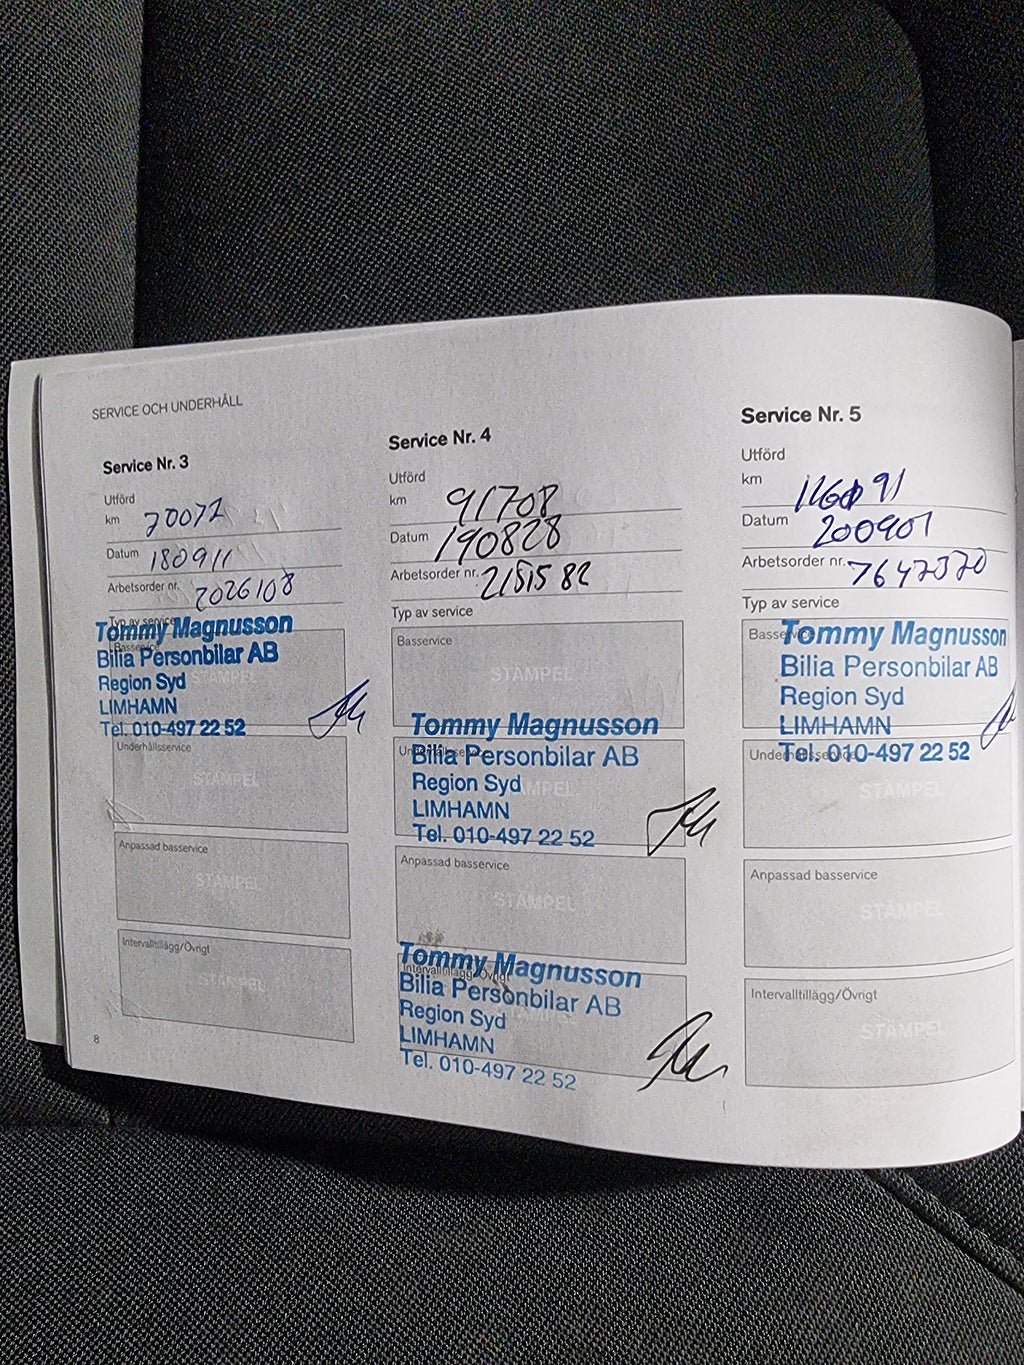 SERVICE OCH UNDERHÅLL
Service Nr. 3
Utförd
km 70072
Datum 180911
Arbetsorder nr. 2026108
Typ av service
Basservice
STÄMPEL
Tommy Magnusson
Bilia Personbilar AB
Region Syd
LIMHAMN
Tel. 010-497 22 52
Underhållsservice
STÄMPEL
Anpassad basservice
STÄMPEL
Intervalltillägg/Övrigt
STÄMPEL
8
Service Nr. 4
Utförd
km 91708
Datum 190828
Arbetsorder nr. 2151582
Typ av service
Basservice
STÄMPEL
Underhållsservice
STÄMPEL
Tommy Magnusson
Bilia Personbilar AB
Region Syd
LIMHAMN
Tel. 010-497 22 52
Anpassad basservice
STÄMPEL
Intervalltillägg/Övrigt
Tommy Magnusson
Bilia Personbilar AB
Region Syd
LIMHAMN
Tel. 010-497 22 52
Service Nr. 5
Utförd
km
Datum 200901
Arbetsorder nr. 7647370
Typ av service
Basservice
Tommy Magnusson
Bilia Personbilar AB
Region Syd
LIMHAMN
Tel. 010-497 22 52
Underhållsservice
STÄMPEL
Anpassad basservice
STÄMPEL
Intervalltillägg/Övrigt
STÄMPEL